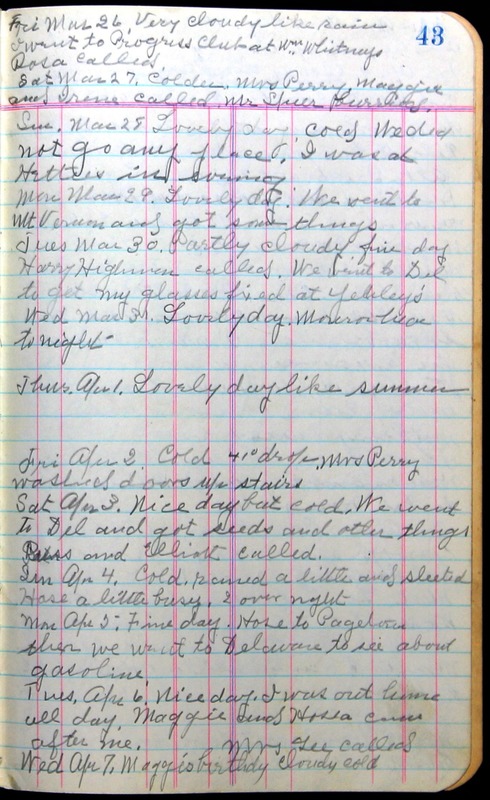 43
Fri Mar 26, Very cloudy like rain
I went to Progress Club at Wm Whitneys
Rosa called.
Sat Mar 27. Colder. Mrs Perry, Maggie
and Irene called. Mr Spier
Sun. Mar 28 Lovely day cold We did
not go any place. I was at
Hetties in evening
Mon Mar 29. Lovely day. We went to
Mt Vernon and got some things
Tues Mar 30. Partly cloudy, fine day
Harry Highmen called. We went to Del
to get my glasses fixed at Yehley's
Wed Mar 31. Lovely day. Monroe here
tonight-
Thur. Apr 1. Lovely day like summer
Fri Apr 2. Cold 41° drop, Mrs Perry
washed doors up stairs
Sat Apr 3. Nice day but cold. We went
to Del and got seeds and other things
and Elliott called.
Sun Apr 4. Cold, rained a little and sleeted
Hose a little busy. 2 over night
Mon Apr 5. Fine day. Hose to Pagetown
then we went to Delaware to see about
gasoline.
Tues. Apr 6 Nice day. I was out home
all day. Maggie and Hosea came
after me. Mrs Lee called
Wed Apr 7. Maggies birthday cloudy cold